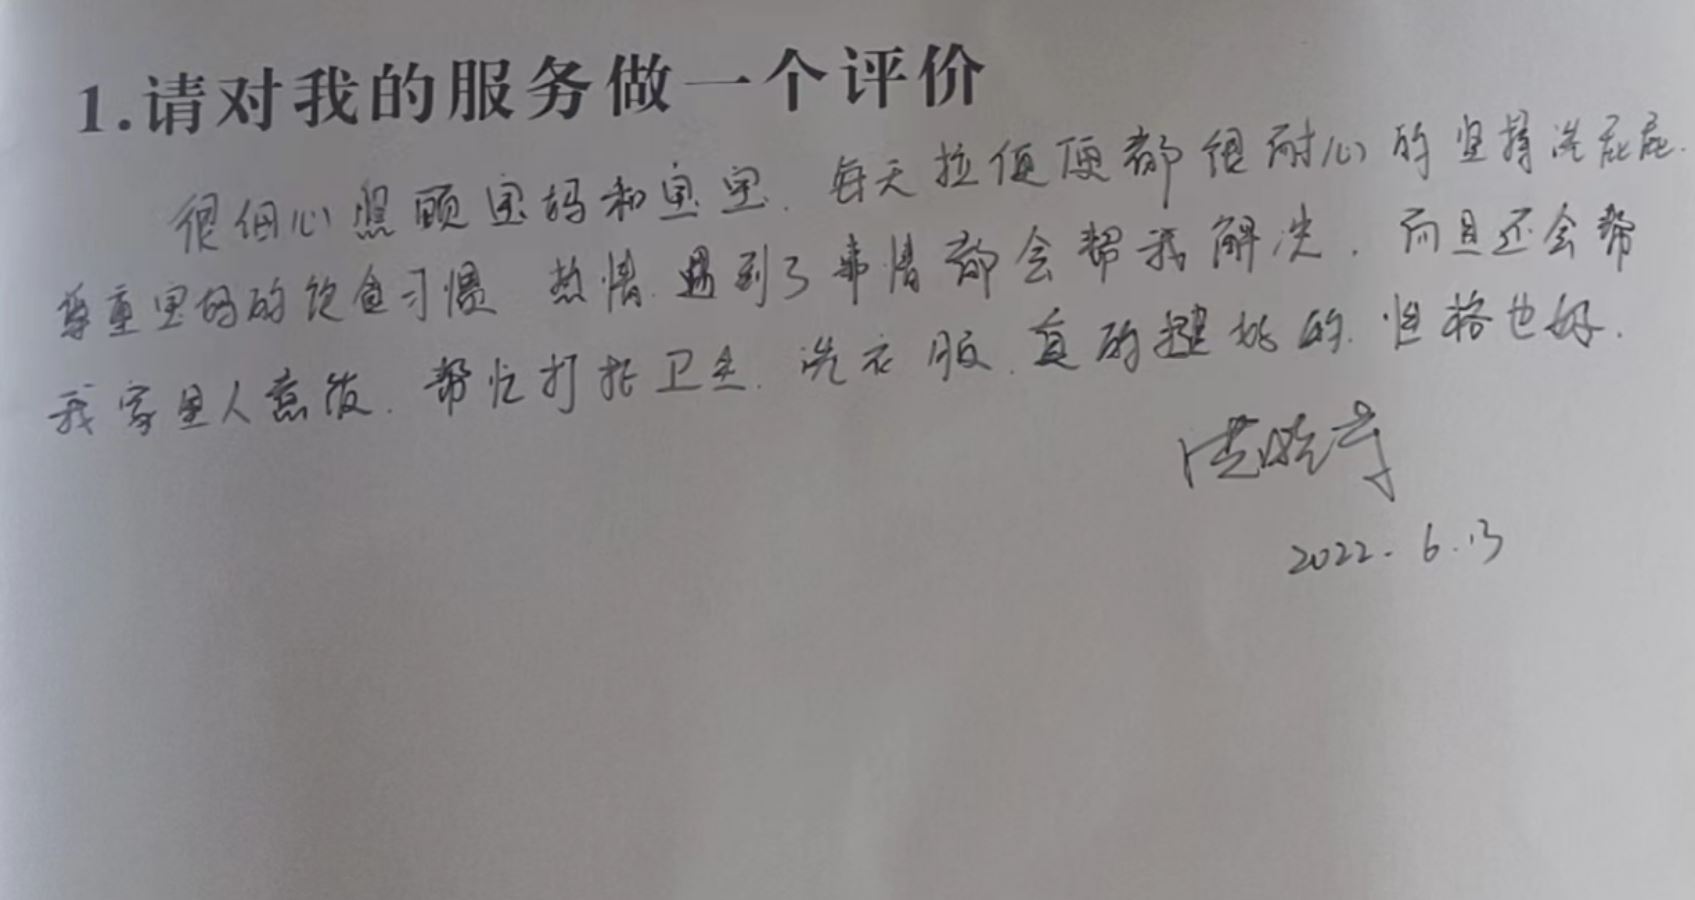 1.请对我的服务做一个评价
很细心照顾宝妈和宝宝.每天拉便便都很耐心的坚持洗屁屁.
尊重宝妈的饮食习惯 热情.遇到了事情都会帮我解决.而且还会帮
我家里人煮饭.帮忙打扫卫生.洗衣服.真的挺好的.性格也好.
2022.6.13